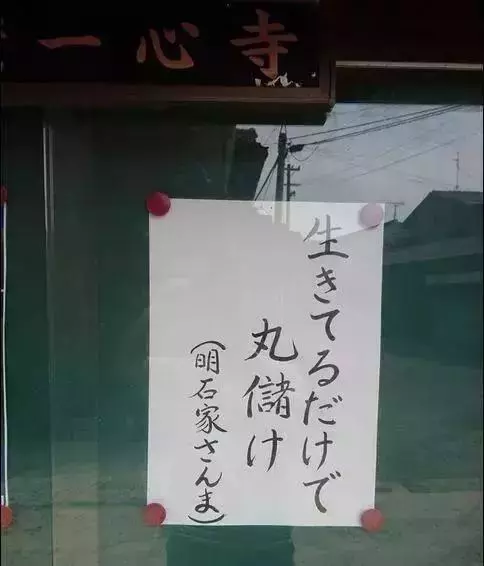 一心寺
生きてるだけで
丸儲け
（明石家さんま）